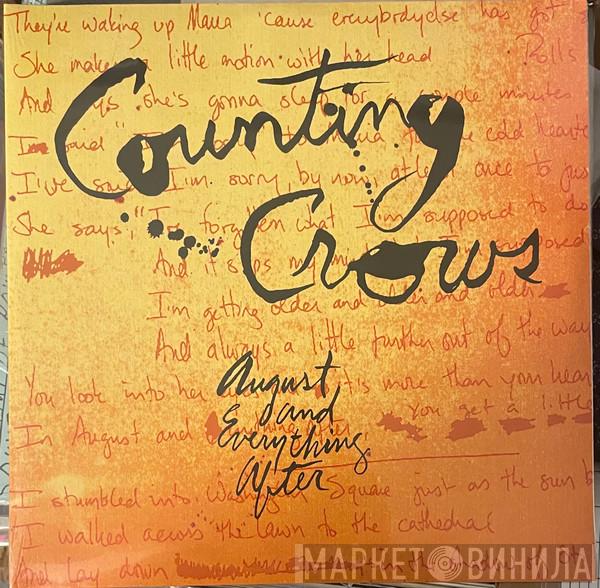 They're waking up Maria 'cause everybody else has got
She makes a little motion with her head Rolls
And says she's gonna sleep for a couple minutes
I'm said to Maria for the cold hearte
I've said I'm sorry by now, at least once to jus
She says, "I've forgotten what I'm supposed to do
And it slips my supposed
I'm getting older and older and older
And always a little further out of the way
You look into her it's more than your hear
You get a little
In August and
I stumbled into Washington Square just as the sun b
I walked across the lawn to the cathedral
And lay down in the
Counting
Crows
August
and
Everything
After
МАРКЕТ ВИНИЛА